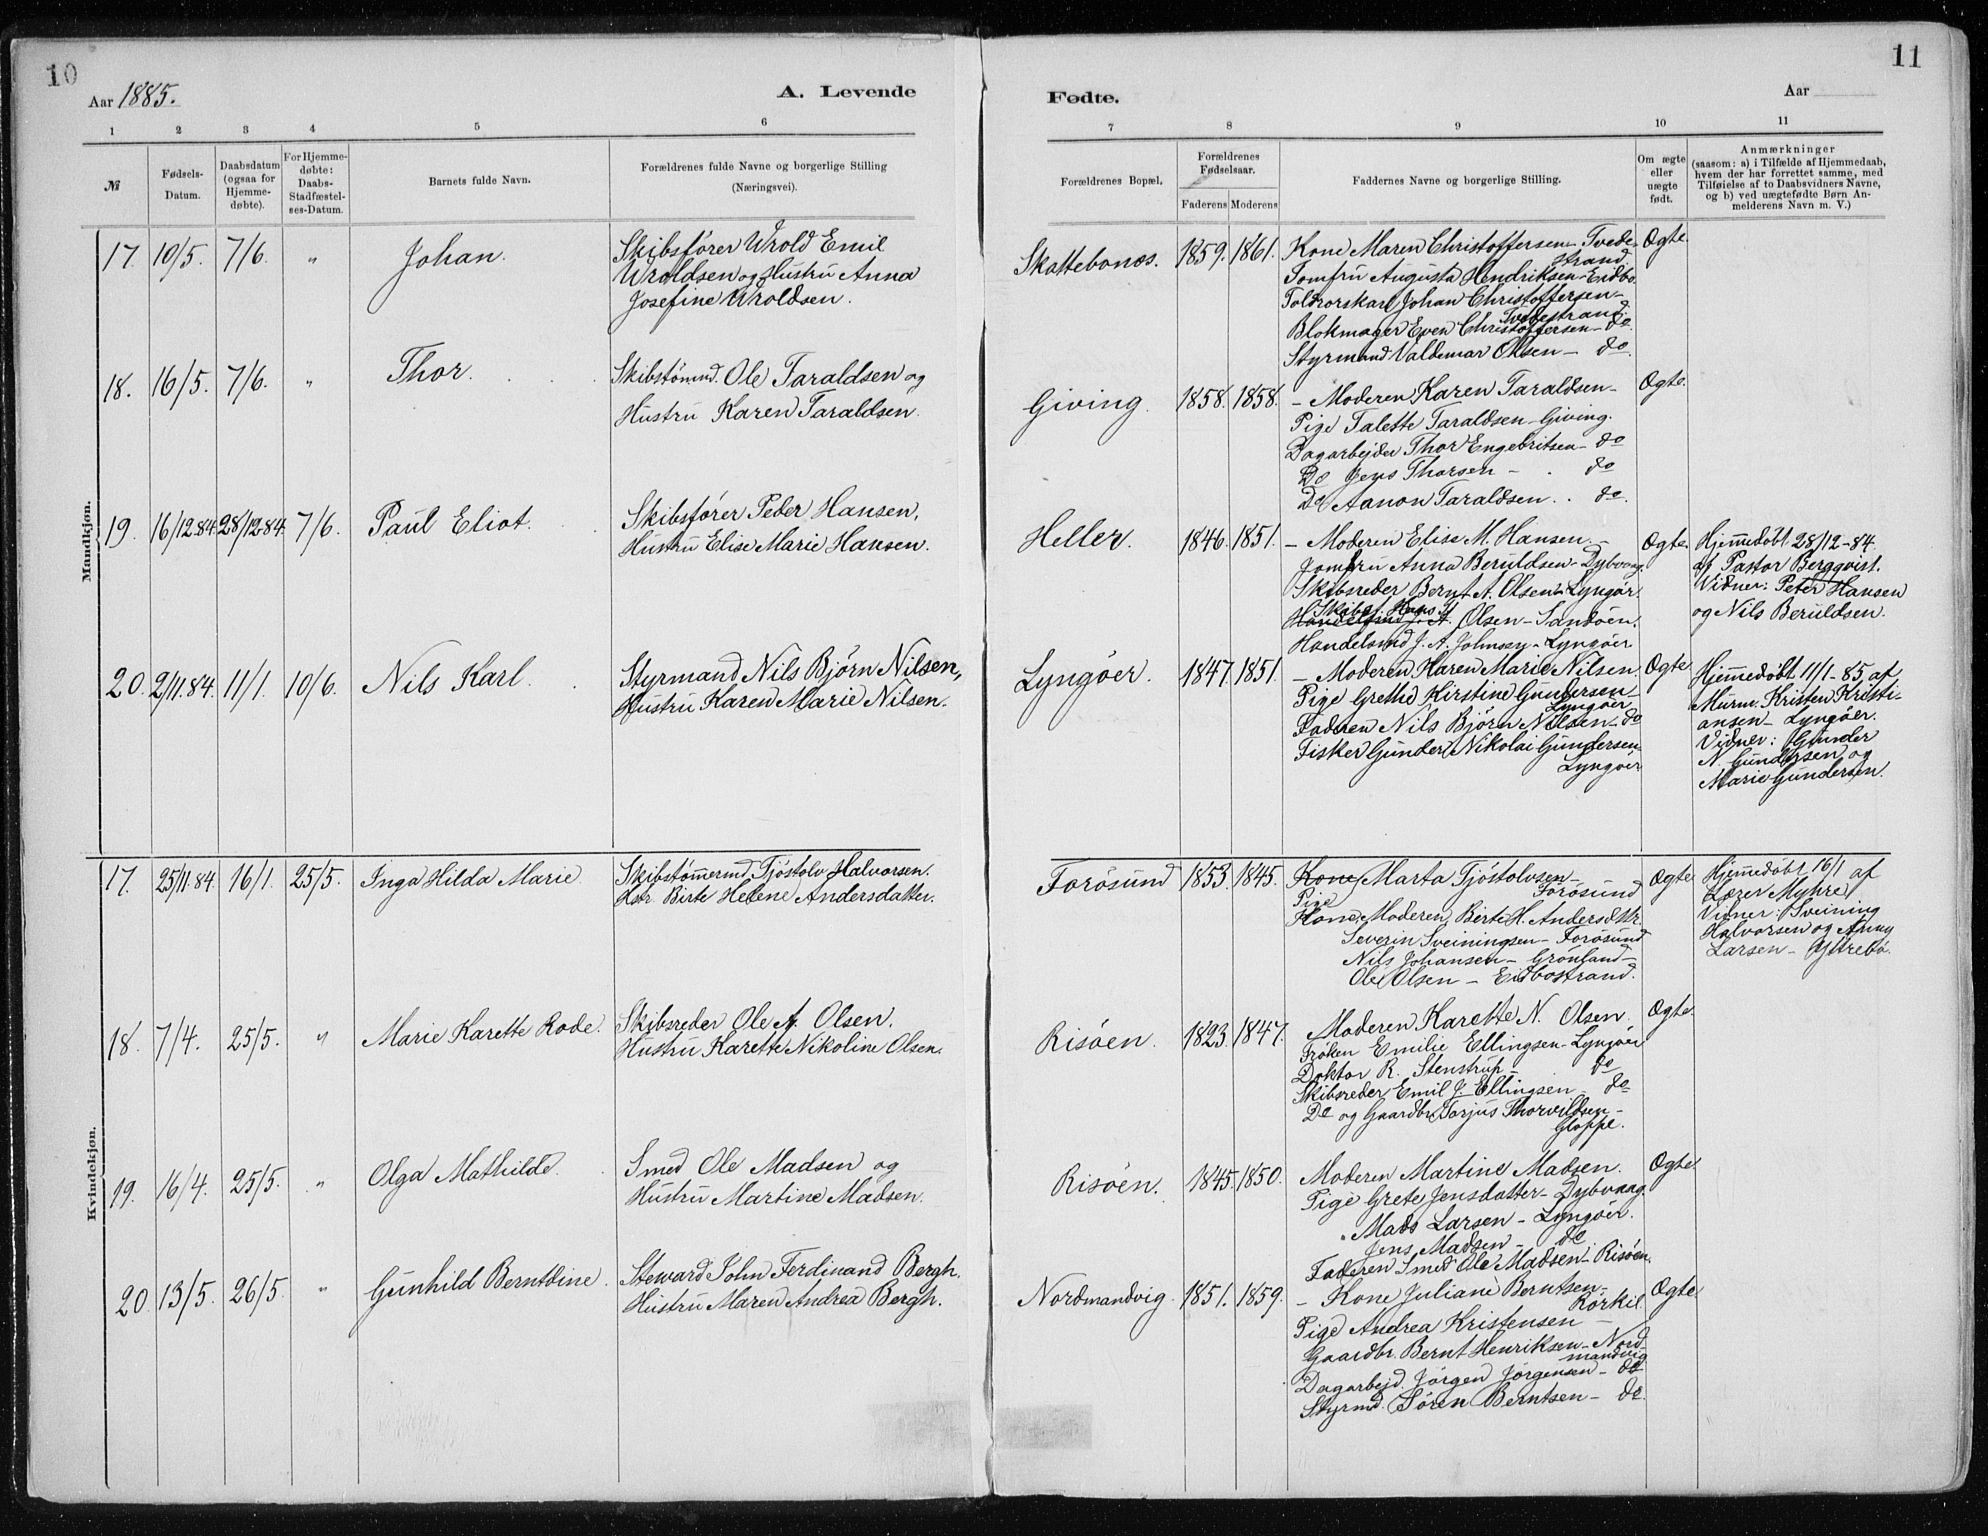 10
Aar 1885.
A. Levende
1 2 3 4 5 6
№
Fødsels-
Datum.
Daabsdatum
(ogsaa for
Hjemme-
døbte).
For Hjemme-
døbte:
Daabs-
Stadfæstel-
ses-Datum.
Barnets fulde Navn.
Forældrenes fulde Navne og borgerlige Stilling
(Næringsvei).
Mandkjøn.
17. 10/5. 7/6. " Johan.
Skibsfører Wrold Emil
Wroldsen og Hustru Anna
Josefine Wroldsen.
18. 16/5. 7/6. " Thor.
Skibstømmd. Ole Taraldsen og
Hustru Karen Taraldsen.
19. 16/12.84. 28/12.84. 7/6. Paul Eliot.
Skibsfører Peder Hansen,
Hustru Elise Marie Hansen.
20. 2/11.84. 11/1. 10/6. Nils Karl.
Styrmand Nils Bjørn Nilsen,
Hustru Karen Marie Nilsen.
Kvindekjøn.
17. 25/11.84. 16/1. 25/5. Inga Hilda Marie
Skibstømermd. Tjøstolv Halvorsen.
Hstr. Birte Helene Andersdatter.
18. 7/4. 25/5. " Marie Karette Rode.
Skibsreder Ole A. Olsen.
Hustru Karette Nikoline Olsen.
19. 16/4. 25/5. " Olga Mathilde.
Smed Ole Madsen og
Hustru Martine Madsen.
20. 13/5. 26/5. " Gunhild Berntdine.
Steward John Ferdinand Bergh.
Hustru Maren Andrea Bergh.
11
Fødte.
Aar
7 8 9 10 11
Forældrenes Bopæl.
Forældrenes
Fødselsaar.
Faderens Moderens
Faddernes Navne og borgerlige Stilling.
Om ægte
eller
uægte
født.
Anmærkninger
(saasom: a) i Tilfælde af Hjemmedaab,
hvem der har forrettet samme, med
Tilføielse af to Daabsvidners Navne,
og b) ved uægtefødte Børn An-
melderens Navn m. V.)
Skottebones. 1859. 1861.
Kone Maren Christoffersen - Tvede-
strand
Jomfru Augusta Hendriksen - Eidbo.
Toldrorskarl Johan Christoffersen -
Tvedestrand.
Blokmager Even Christoffersen - do.
Styrmand Valdemar Olsen - do.
Ægte.
Giving. 1858. 1858.
- Moderen Karen Taraldsen -
Pige Talette Taraldsen - Giving.
Dagarbejder Thor Engebritsen - do
Do Jens Thorsen - do
Do Aanon Taraldsen. do.
Ægte.
Heller. 1846. 1851.
- Moderen Elise M. Hansen. -
Jomfru Anna Beruldsen - Dybvaag.
Skibsreder Bernt A. Olsen - Lyngør
Skibsf. Hans A.
Olsen - Sandøen.
Handelsmd J. A. Johnsen - Lyngøer
Ægte.
Hjemedøbt 28/12-84
af Pastor Bergqvist.
Vidner: Peter Hansen
og Nils Beruldsen.
Lyngøer. 1847. 1851.
- Moderen Karen Marie Nilsen.
Pige Grethe Kirstine Gundersen -
Lyngøer
Faderen Nils Bjørn Nilsen - do
Fisker Gunder Nikolai Gundersen -
Lyngøer
Ægte
Hjemedøbt 11/1-85 af
Murm. Kristen Kristi-
ansen - Lyngøer.
Vidner: Gunder
N. Gundersen og
Marie Gundersen.
Forøsund 1853. 1845.
Kone Marta Tjøstolvsen -
Pige Forøsund
Kone Moderen Birte H. Andersdttr.
Severin Sveiningsen - Forøsund
Nils Johansen - Grønland -
Ole Olsen - Eidbostrand.
Ægte
Hjemedøbt 16/1 af
Lærer Myhre
Vidner: Sveining
Halvorsen og
Larsen -
Risøen. 1823. 1847.
Moderen Karette N. Olsen.
Frøken Emilie Ellingsen - Lyngøer
Doktor R. Stenstrup - do
Skibsreder Emil J. Ellingsen - do
Do og Gaardbr. Torjus Thorvildsen -
Gloppe.
Ægte.
Risøen. 1845. 1850.
Moderen Martine Madsen.
Pige Grete Jensdatter - Dybvaag.
Mads Larsen - Lyngøer.
Jens Madsen - do
Faderen Smed Ole Madsen - Risøen.
Ægte.
Nordmandvig. 1851. 1859.
- Kone Juliane Berntsen -
Rørkil
Pige Andrea Kristensen -
Gaardbr. Bernt Henriksen - Nord-
mandvig
Dagarbejd. Jørgen Jørgensen - do
Styrmd. Søren Berntsen - do.
Ægte.